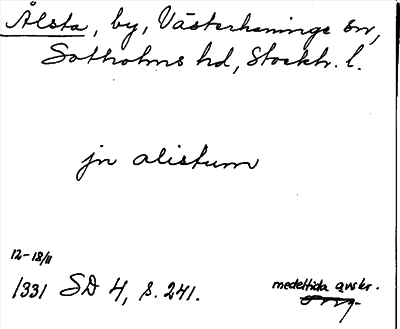 Ålsta, by, Västerhaninge sn,
Sotholms hd, Stockh. l.
jn alistum
12-18/11
1331 SD 4, s. 241.
medeltida avskr.